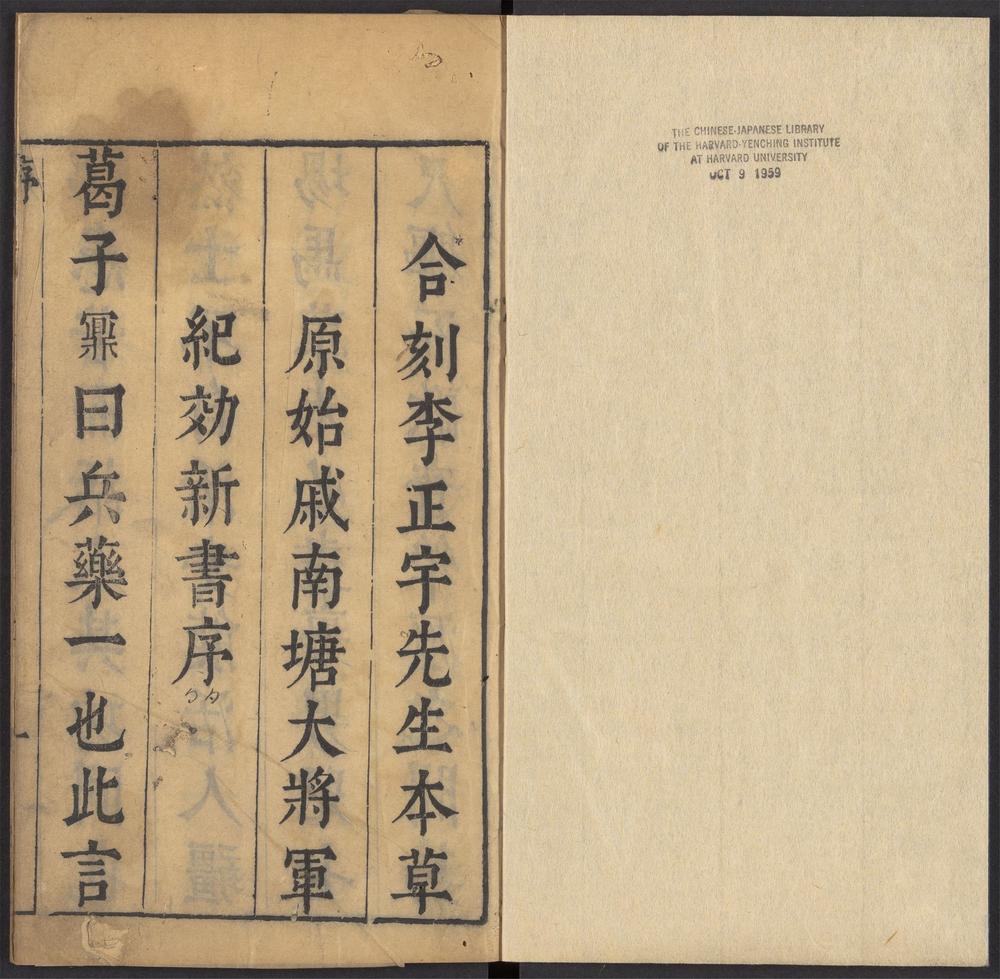 THE CHINESE-JAPANESE LIBRARY
OF THE HARVARD-YENCHING INSTITUTE
AT HARVARD UNIVERSITY
OCT 9 1959
合刻李正宇先生本草
原始戚南塘大將軍
紀効新書序
葛子鼏曰兵藥一也此言
序